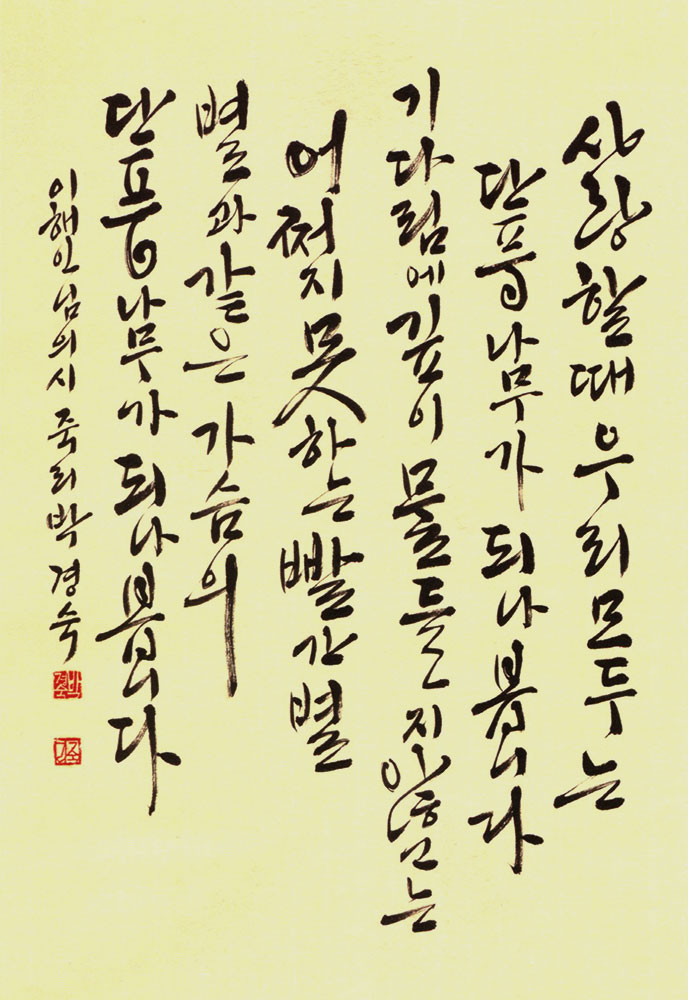 사랑할때 우리 모두는
단풍나무가 되나 봅니다
기다림에 깊이 물들지 않고는
어쩌지 못하는 빨간 별
별과 같은 가슴의
단풍나무가 되나 봅니다
이해인님의 시 죽리 박경숙